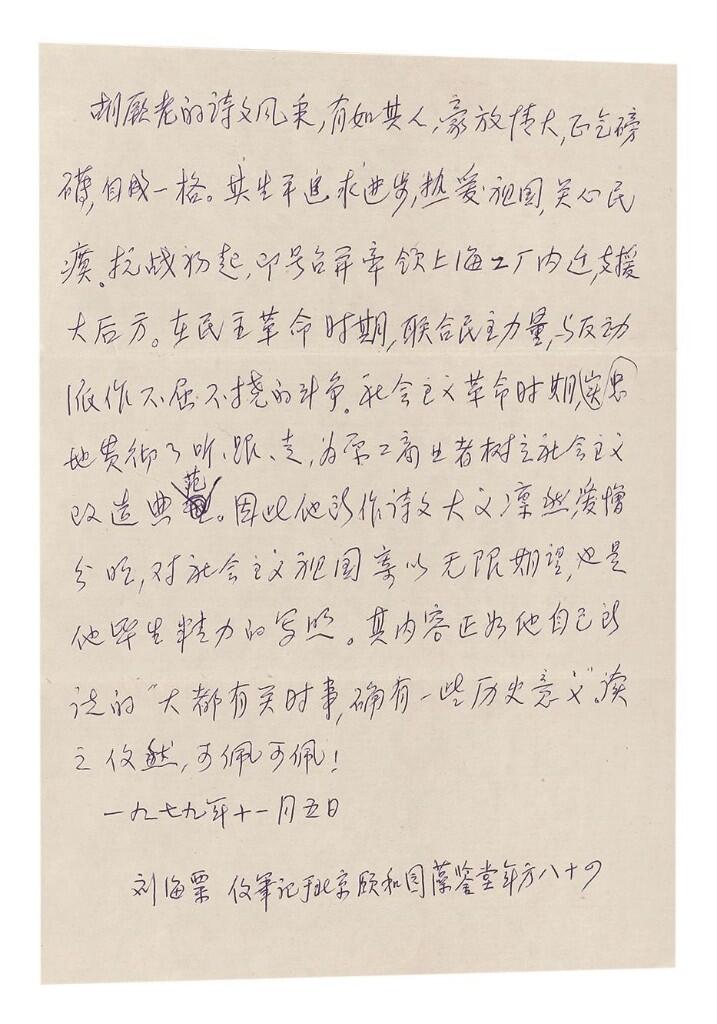 胡厥老的诗文风采,有如其人,豪放博大,正气磅
礴,自成一格。其生平追求进步,热爱祖国,关心民
瘼。抗战初起,即号召并率领上海工厂内迁,支援
大后方。在民主革命时期,联合民主力量,与反动
派作不屈不挠的斗争。社会主义革命时期,忠实
地贯彻了听、跟、走,为原工商业者树立社会主义
改造典范。因此他所作诗文大义凛然,爱憎
分明,对社会主义祖国寄以无限期望,也是
他毕生精力的写照。其内容正如他自己所
说的“大都有关时事,确有一些历史意义”。读
之仪然,可佩可佩!
一九七九年十一月五日
刘海粟 笔记于北京颐和园藻鉴堂年方八十四